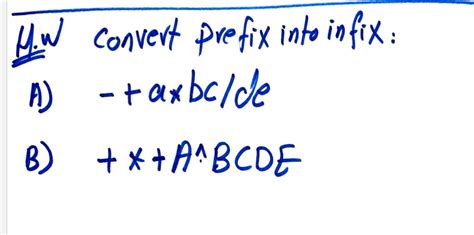 H.W Convert prefix into infix:
A) -+axbc/de
B) +x+A^BCDE